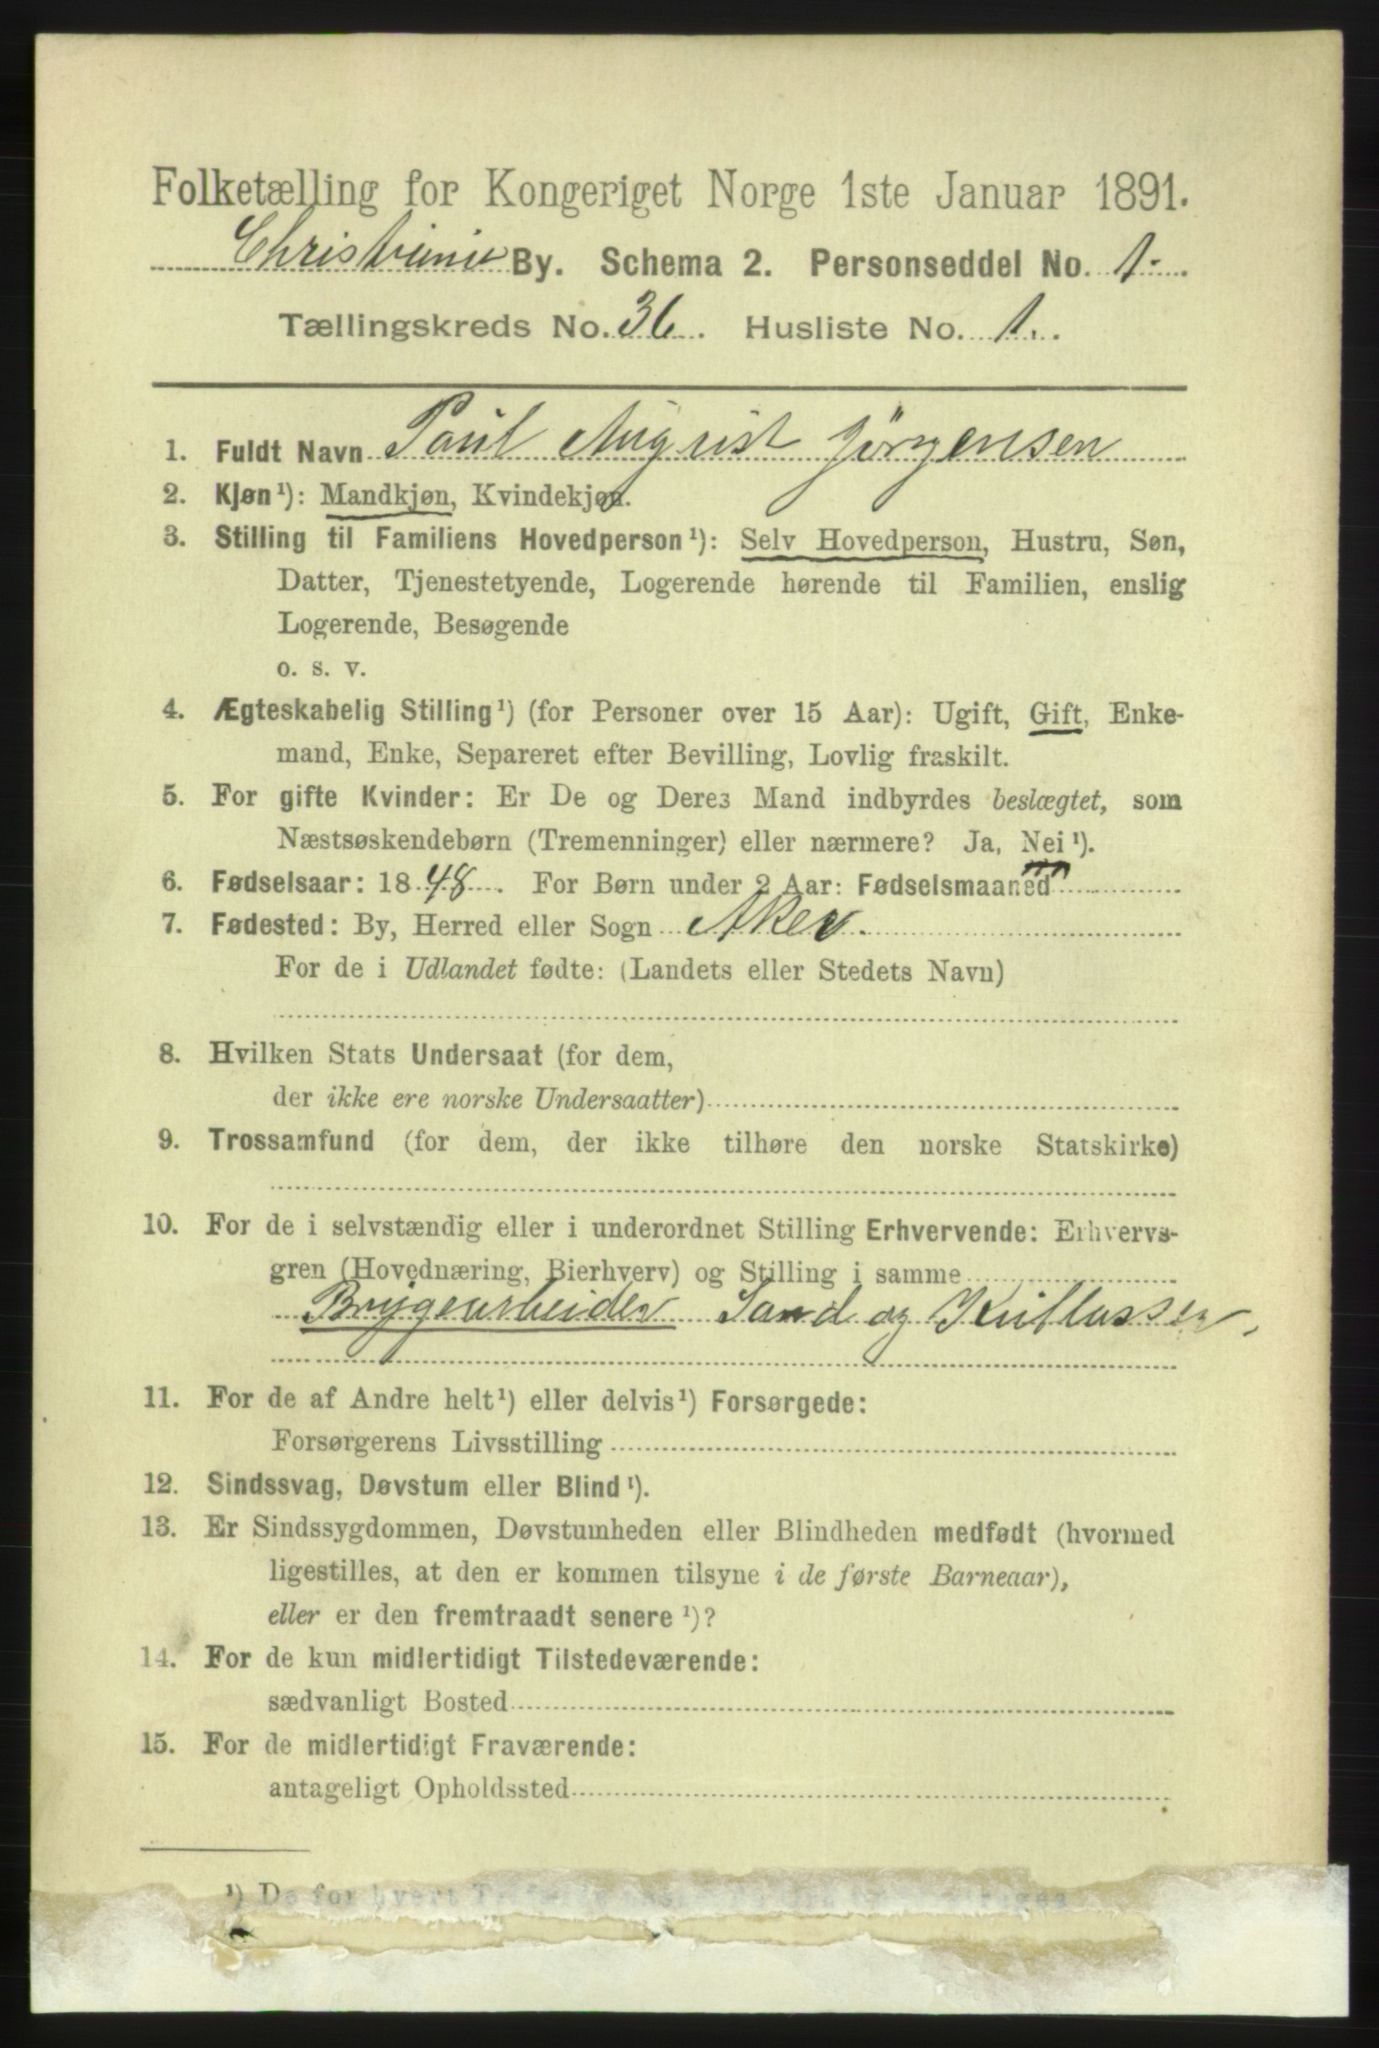 Folketælling for Kongeriget Norge 1ste Januar 1891.
Christiania By. Schema 2. Personseddel No. 1.
Tællingskreds No. 36. Husliste No. 1.
1. Fuldt Navn Paul August Jörgensen
2. Kjøn¹): Mandkjøn, Kvindekjøn.
3. Stilling til Familiens Hovedperson¹): Selv Hovedperson, Hustru, Søn,
Datter, Tjenestetyende, Logerende hørende til Familien, enslig
Logerende, Besøgende
o. s. v.
4. Ægteskabelig Stilling¹) (for Personer over 15 Aar): Ugift, Gift, Enke-
mand, Enke, Separeret efter Bevilling, Lovlig fraskilt.
5. For gifte Kvinder: Er De og Deres Mand indbyrdes beslægtet, som
Næstsøskendebørn (Tremenninger) eller nærmere? Ja, Nei¹).
6. Fødselsaar: 1848. For Børn under 2 Aar: Fødselsmaaned
7. Fødested: By, Herred eller Sogn Aker.
For de i Udlandet fødte: (Landets eller Stedets Navn)
8. Hvilken Stats Undersaat (for dem,
der ikke ere norske Undersaatter)
9. Trossamfund (for dem, der ikke tilhøre den norske Statskirke)
10. For de i selvstændig eller i underordnet Stilling Erhvervende: Erhvervs-
gren (Hovednæring, Bierhverv) og Stilling i samme
Brygearbeider Sand og
11. For de af Andre helt¹) eller delvis¹) Forsørgede:
Forsørgerens Livsstilling
12. Sindssvag, Døvstum eller Blind¹).
13. Er Sindssygdommen, Døvstumheden eller Blindheden medfødt (hvormed
ligestilles, at den er kommen tilsyne i de første Barneaar),
eller er den fremtraadt senere¹)?
14. For de kun midlertidigt Tilstedeværende:
sædvanligt Bosted
15. For de midlertidigt Fraværende:
antageligt Opholdssted
¹) De for hvert